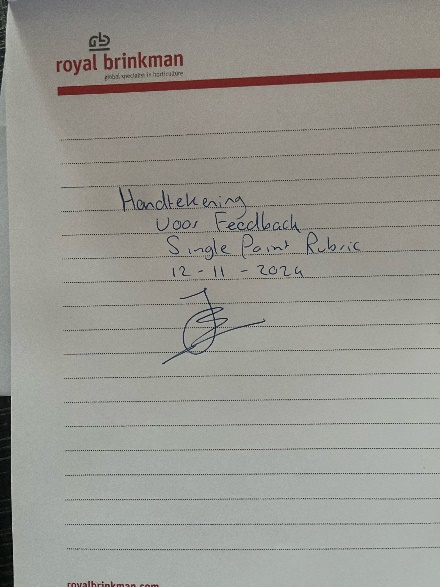 royal brinkman
global specialist in horticulture
Handtekening
voor Feedback
Single Point Rubric
12-11-2024
royalbrinkman.com